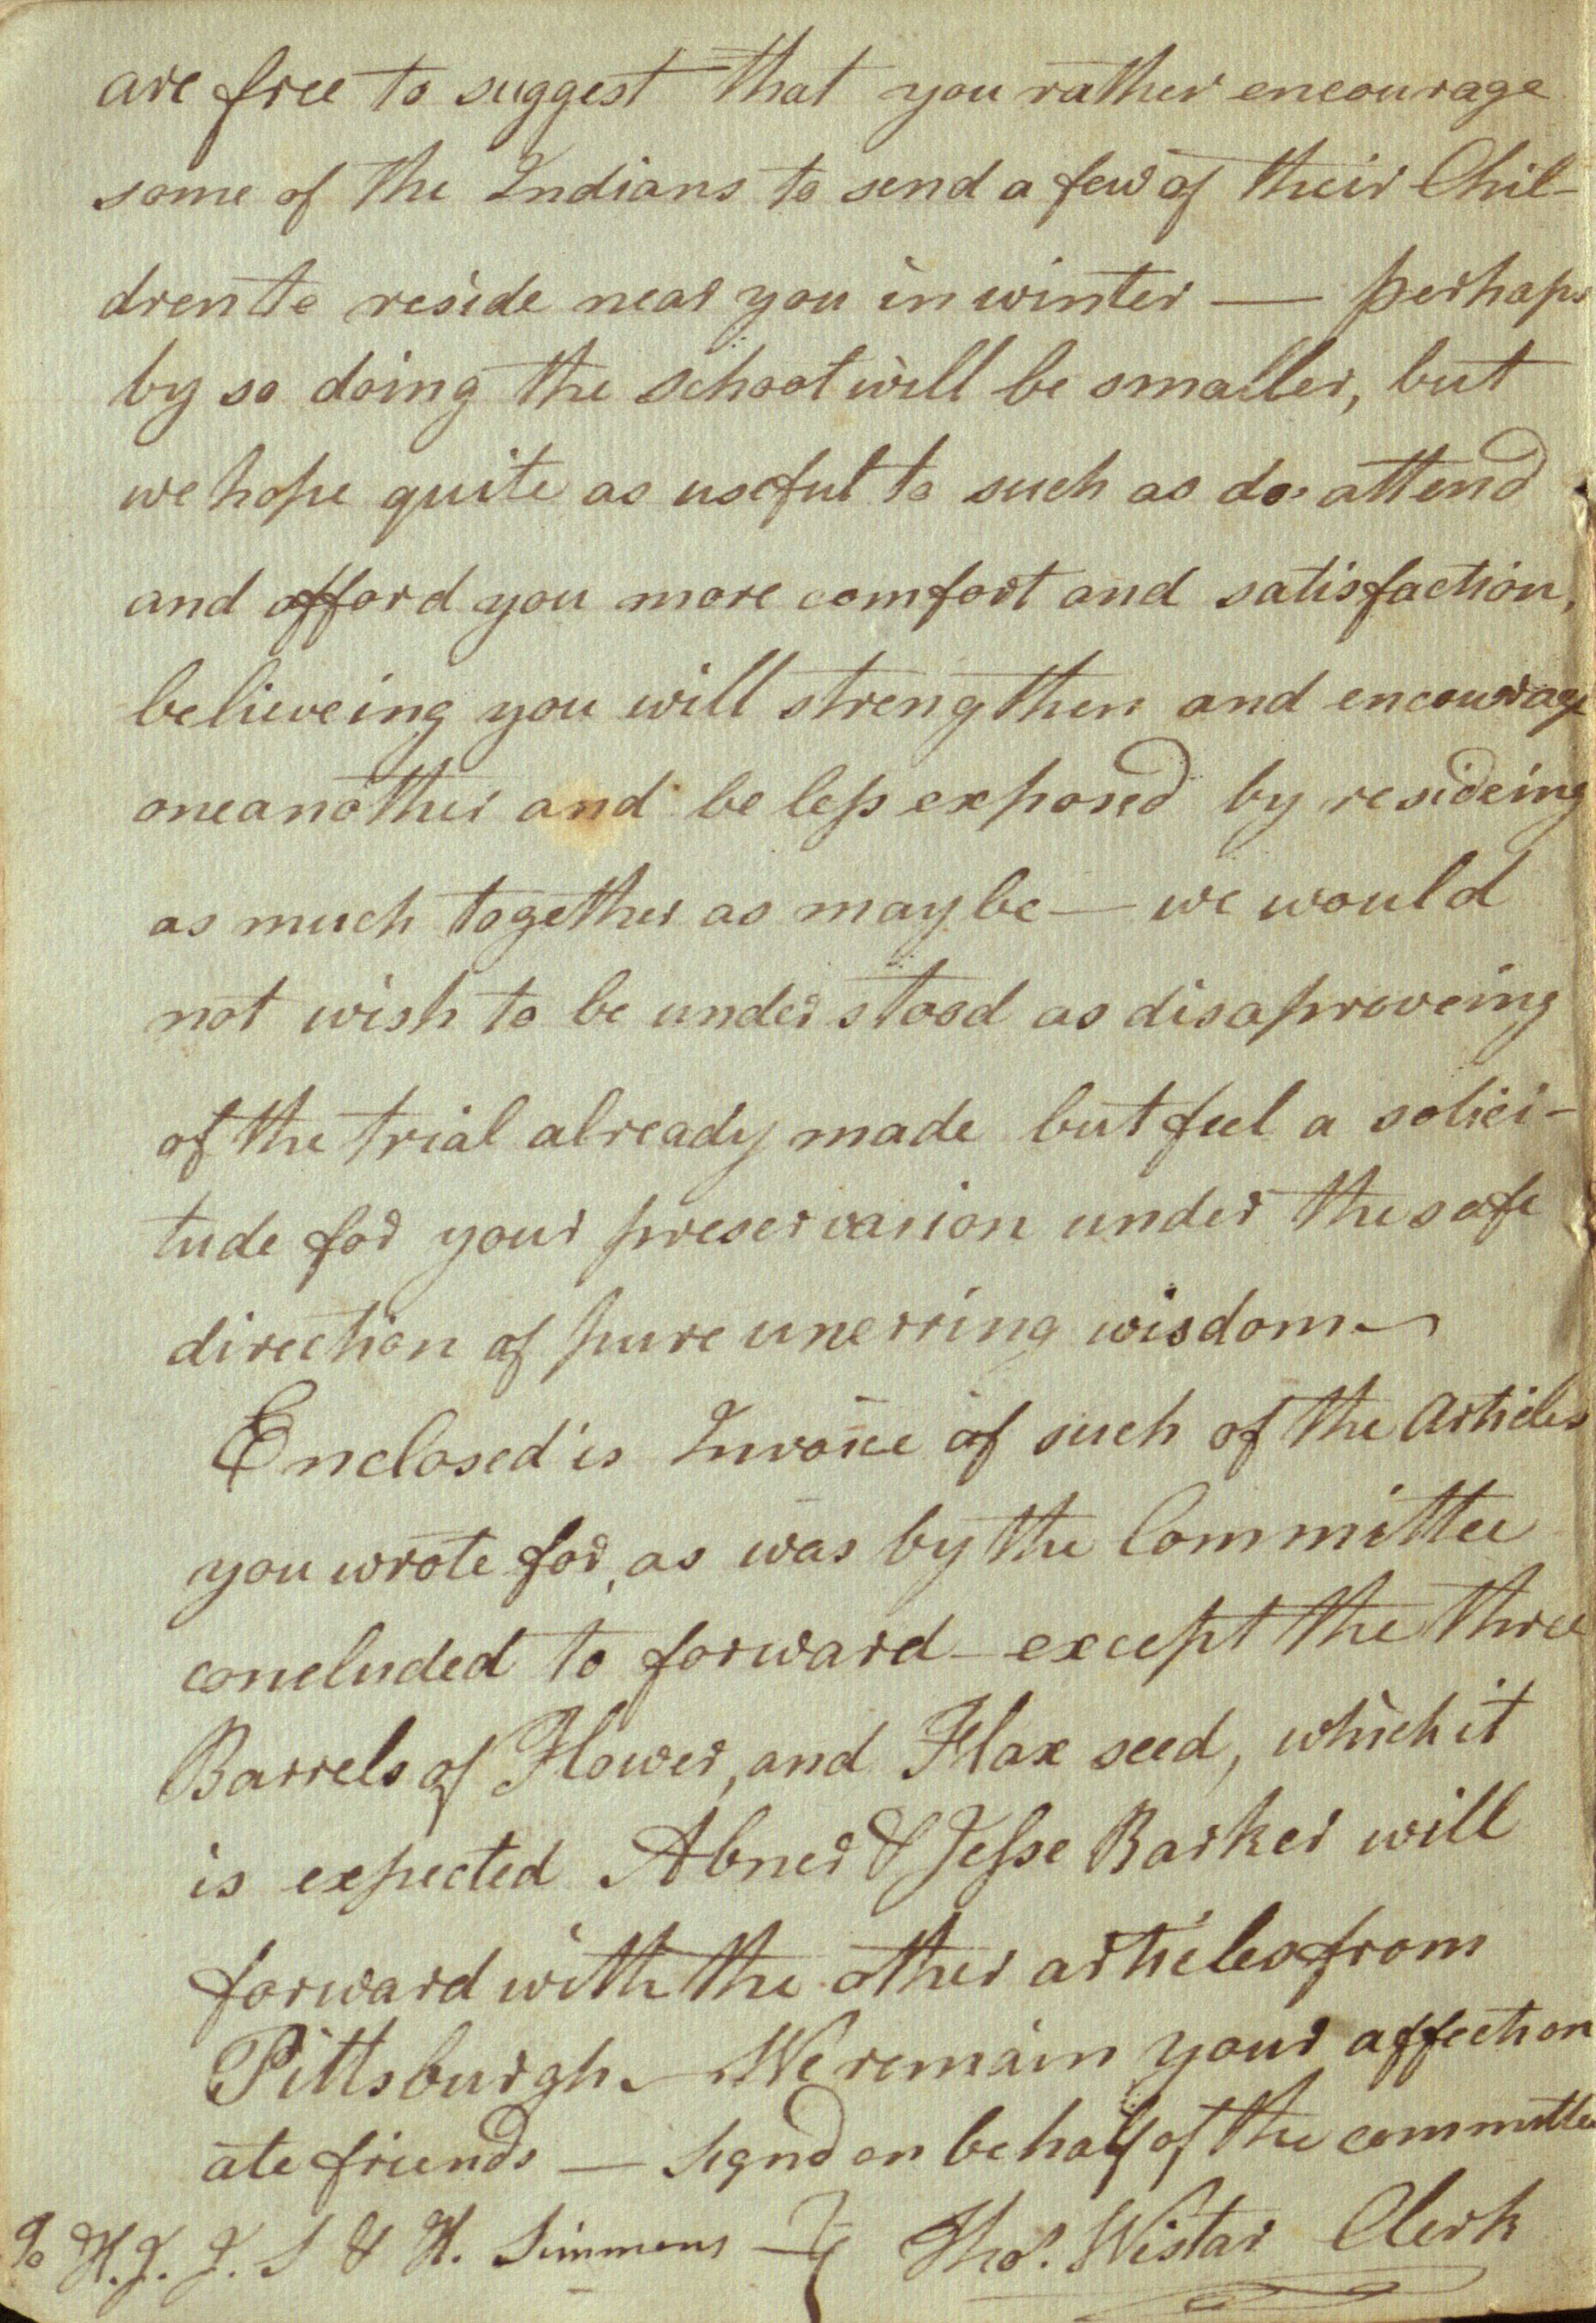 are free to suggest that you rather encourage
some of the Indians to send a few of their Chil-
dren to reside near you in winter — perhaps
by so doing the school will be smaller, but
we hope quite as useful to such as do attend
and afford you more comfort and satisfaction,
believeing you will strengthen and encourage
oneanother and be less exposed by resideing
as much together as may be — we would
not wish to be understood as disaproveing
of the trial already made but feel a solici-
tude for your preservasion under the safe
direction of pure unerring wisdom —
Enclosed is Invoice of such of the Articles
you wrote for, as was by the Committee
concluded to forward – except the three
Barrels of Flower, and Flax seed, which it
is expected Abner & Jesse Barker will
forward with the other articles from
Pittsburgh. — We remain your affection
ate friends — Signd on behalf of the committee
To H.J. J. S & H. Simmons — } Thos. Wistar Clerk